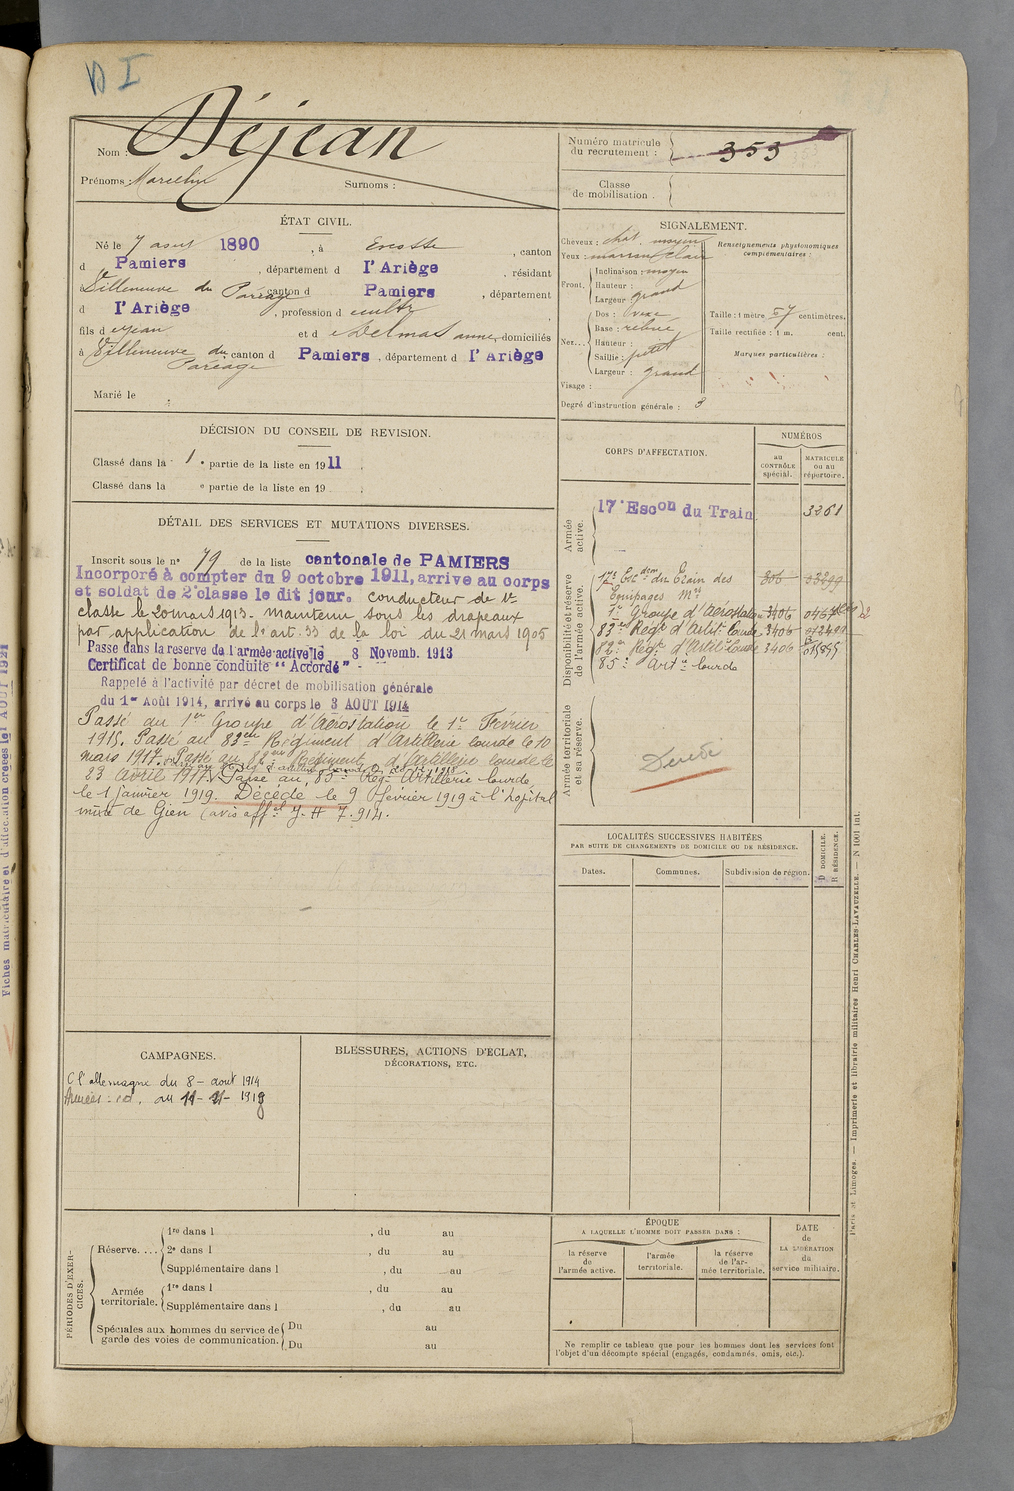 D I
Nom : Déjean
Prénoms : Marcelin Surnoms :
Numéro matricule
du recrutement : 353
Classe
de mobilisation .
ÉTAT CIVIL.
Né le 7 aout 1890 , à Escosse , canton
d Pamiers , département d l'Ariège , résidant
à Villeneuve du Paréage canton d Pamiers , département
d l'Ariège , profession d cultr
fils d Jean et d Delmas anne, domiciliés
à Villeneuve du Paréage canton d Pamiers , département d l'Ariège
Marié le
SIGNALEMENT.
Cheveux : chât. moyen
Yeux : marron clair
Front. Inclinaison : moyen
Hauteur :
Largeur grand
Nez... Dos :
Base :
Hauteur :
Saillie : petit
Largeur : grand
Visage :
Renseignements physionomiques
complémentaires :
Taille : 1 mètre 57 centimètres.
Taille rectifiée : 1 m. cent.
Marques particulières :
Degré d'instruction générale : 3
DÉCISION DU CONSEIL DE REVISION.
Classé dans la 1 e partie de la liste en 1911 .
Classé dans la e partie de la liste en 19 .
DÉTAIL DES SERVICES ET MUTATIONS DIVERSES.
Inscrit sous le n° 79 de la liste cantonale de PAMIERS
Incorporé à compter du 9 octobre 1911, arrive au corps
et soldat de 2e classe le dit jour. conducteur de 1re
classe le 20 mars 1913. maintenu sous les drapeaux
par application de l'art. 33 de la loi du 21 mars 1905
Passe dans la reserve de l'armée active le 8 Novemb. 1913
Certificat de bonne conduite "Accordé"
Rappelé à l'activité par décret de mobilisation générale
du 1er Août 1914, arrivé au corps le 3 AOUT 1914
Passé au 1er Groupe d'Aérostation le 1er Février
1915. Passé au 83eme Régiment d'Artillerie lourde le 10
mars 1917. Passé au 82eme Régiment d'Artillerie lourde le
23 avril 1917. Passé au 85e Régt Artillerie lourde
le 1 janvier 1919. Décédé le 9 février 1919 à l'hopital
mixte de Gien (avis offel J. H 7.914.
CORPS D'AFFECTATION.
NUMÉROS
au
CONTRÔLE
spécial.
MATRICULE
ou au
répertoire.
Armée
active.
17e Escon du Train 3261
Disponibilité et réserve
de l'armée active.
17e Escdron du Train des 306
Equipages Mres
1er Groupe d'Aérostation 3406
83e Regt d'Artie Lourde 3406
82e Regt d'Artie Lourde 3406
85e Artie lourde
Armée territoriale
et sa réserve.
Décédé
LOCALITÉS SUCCESSIVES HABITÉES
PAR SUITE DE CHANGEMENTS DE DOMICILE OU DE RÉSIDENCE.
Dates.
Communes.
Subdivision de région.
D DOMICILE.
R RÉSIDENCE.
CAMPAGNES.
C l'allemagne du 8 - aout 1914
au 1919
BLESSURES, ACTIONS D'ÉCLAT,
DÉCORATIONS, ETC.
PÉRIODES D'EXER-
CICES.
Réserve.... 1re dans l , du au
2e dans l , du au
Supplémentaire dans l , du au
Armée
territoriale. 1re dans l , du au
Supplémentaire dans l , du au
Spéciales aux hommes du service de
garde des voies de communication. Du au
Du au
ÉPOQUE
A LAQUELLE L'HOMME DOIT PASSER DANS :
la réserve
de
l'armée active.
l'armée
territoriale.
la réserve
de l'ar-
mée territoriale.
DATE
de
LA LIBÉRATION
du
service militaire.
Ne remplir ce tableau que pour les hommes dont les services font
l'objet d'un décompte spécial (engagés, condamnés, omis, etc.).
Paris et Limoges. — Imprimerie et librairie militaires Henri CHARLES-LAVAUZELLE. — N 1001 int.
Fiches matriculaire et d'affectation créées le 1 AOUT 1921